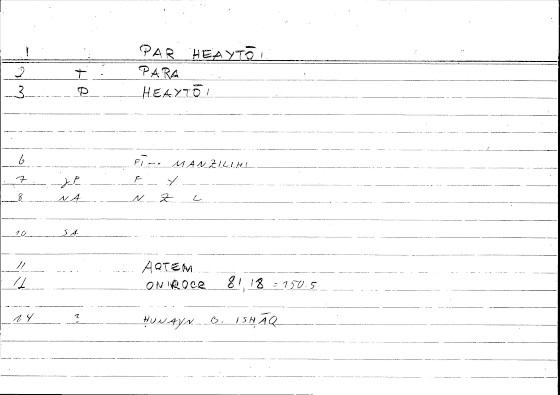 1 PAR HEAYTŌI
2 T PARA
3 D HEAYTŌI
6 FĪ--- MANZILIHI
7 JP F Y
8 NA N Z L
10 SA
11 ARTEM
12 ONIROCR 81,18 = 150.5
14 ? ḤUNAYN B. ISḤĀQ